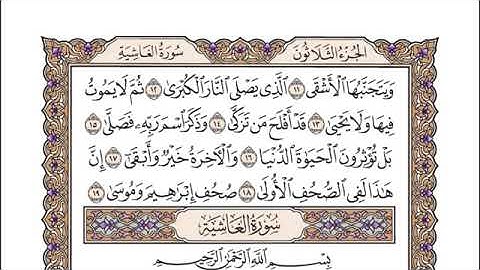 الجُزْءُ الثَّلَاثُونَ
سُورَةُ الغَاشِيَةِ
وَيَتَجَنَّبُهَا ٱلْأَشْقَى ١١ ٱلَّذِي يَصْلَى ٱلنَّارَ ٱلْكُبْرَىٰ ١٢ ثُمَّ لَا يَمُوتُ
فِيهَا وَلَا يَحْيَىٰ ١٣ قَدْ أَفْلَحَ مَن تَزَكَّىٰ ١٤ وَذَكَرَ ٱسْمَ رَبِّهِۦ فَصَلَّىٰ ١٥
بَلْ تُؤْثِرُونَ ٱلْحَيَوٰةَ ٱلدُّنْيَا ١٦ وَٱلْآخِرَةُ خَيْرٌ وَأَبْقَىٰٓ ١٧ إِنَّ
هَٰذَا لَفِي ٱلصُّحُفِ ٱلْأُولَىٰ ١٨ صُحُفِ إِبْرَٰهِيمَ وَمُوسَىٰ ١٩
سُورَةُ الغَاشِيَةِ
بِسْمِ ٱللَّهِ ٱلرَّحْمَٰنِ ٱلرَّحِيمِ